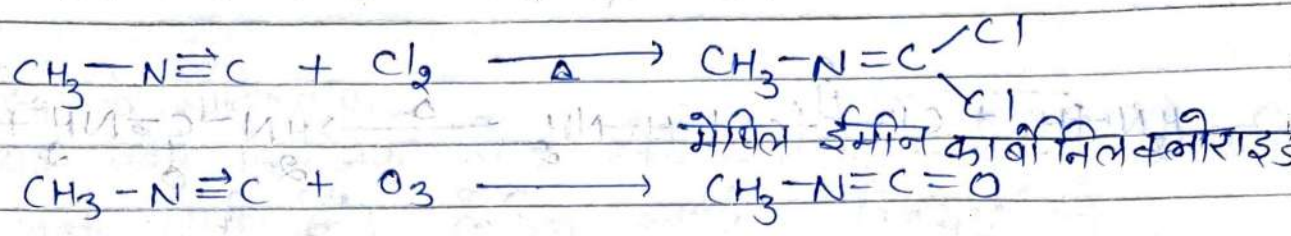 CH₃-N≡C + Cl₂ —Δ→ CH₃-N=C
Cl
Cl
मेथिल ईमीन कार्बोनिलक्लोराइड
CH₃-N≡C + O₃ ⟶ CH₃-N=C=O